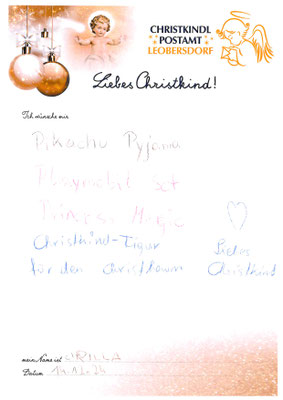 CHRISTKINDL
POSTAMT
LEOBERSDORF
Liebes Christkind!
Ich wünsche mir
Pikachu Pyjama
Playmobil Set
Princess Magic
Christkind-Figur
für den Christbaum
Liebes
Christkind
mein Name ist
Datum 14.12.23